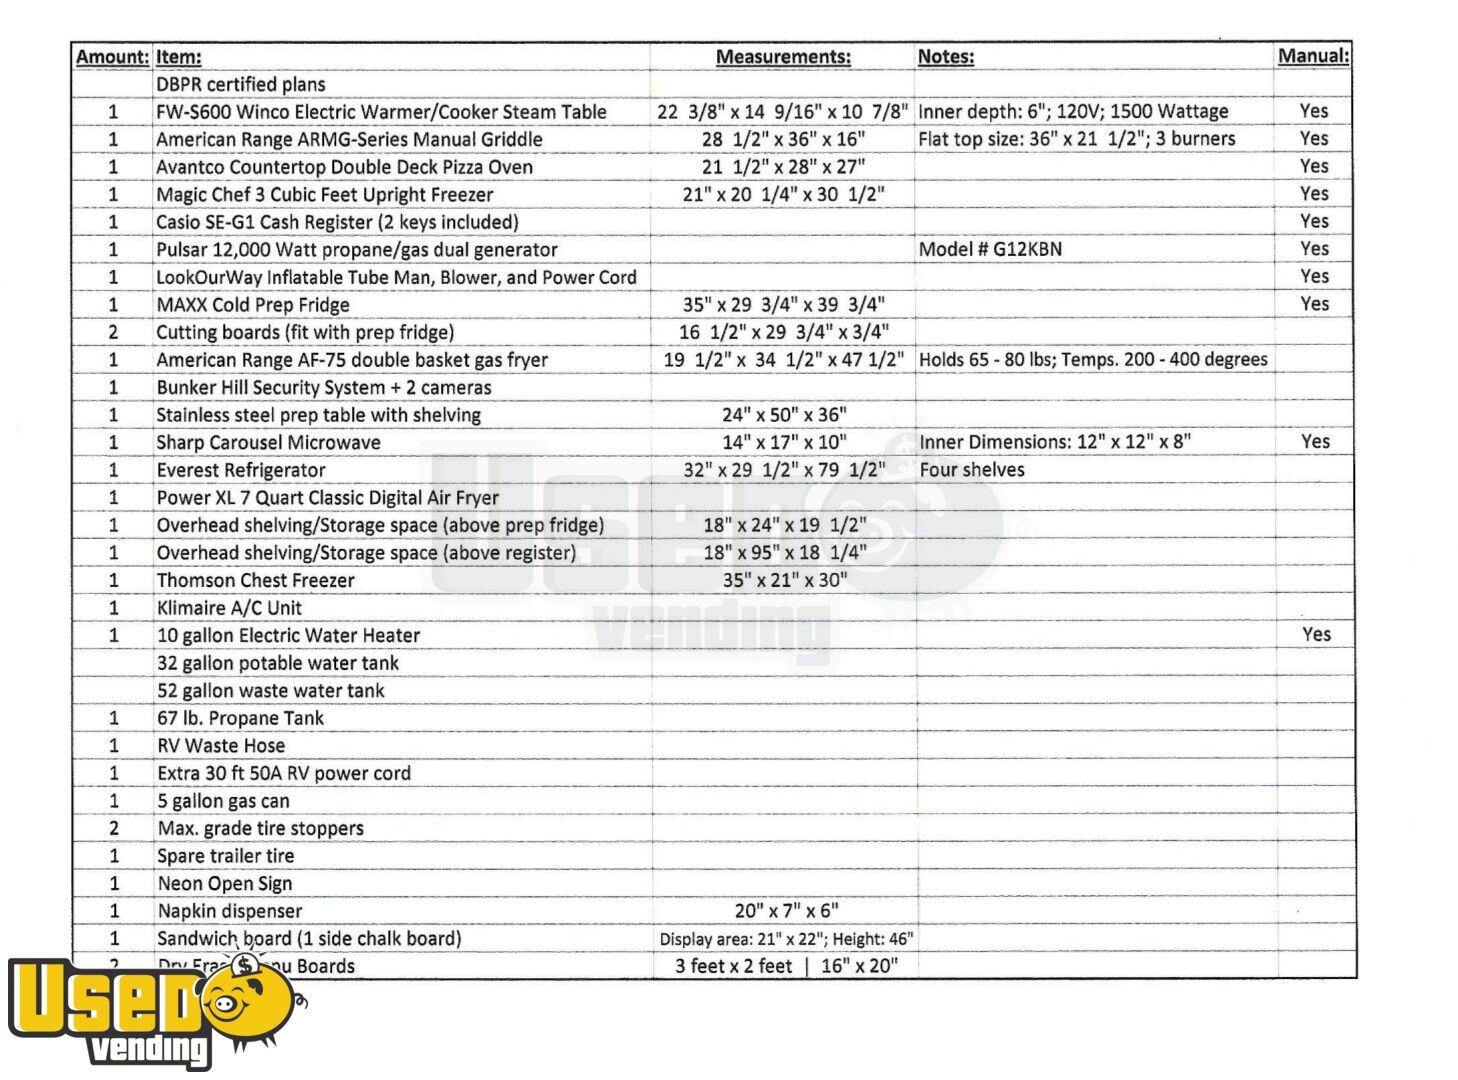 Amount: Item: Measurements: Notes: Manual:
DBPR certified plans
1 FW-S600 Winco Electric Warmer/Cooker Steam Table 22 3/8" x 14 9/16" x 10 7/8" Inner depth: 6"; 120V; 1500 Wattage Yes
1 American Range ARMG-Series Manual Griddle 28 1/2" x 36" x 16" Flat top size: 36" x 21 1/2"; 3 burners Yes
1 Avantco Countertop Double Deck Pizza Oven 21 1/2" x 28" x 27" Yes
1 Magic Chef 3 Cubic Feet Upright Freezer 21" x 20 1/4" x 30 1/2" Yes
1 Casio SE-G1 Cash Register (2 keys included) Yes
1 Pulsar 12,000 Watt propane/gas dual generator Model # G12KBN Yes
1 LookOurWay Inflatable Tube Man, Blower, and Power Cord Yes
1 MAXX Cold Prep Fridge 35" x 29 3/4" x 39 3/4" Yes
2 Cutting boards (fit with prep fridge) 16 1/2" x 29 3/4" x 3/4"
1 American Range AF-75 double basket gas fryer 19 1/2" x 34 1/2" x 47 1/2" Holds 65 - 80 lbs; Temps. 200 - 400 degrees
1 Bunker Hill Security System + 2 cameras
1 Stainless steel prep table with shelving 24" x 50" x 36"
1 Sharp Carousel Microwave 14" x 17" x 10" Inner Dimensions: 12" x 12" x 8" Yes
1 Everest Refrigerator 32" x 29 1/2" x 79 1/2" Four shelves
1 Power XL 7 Quart Classic Digital Air Fryer
1 Overhead shelving/Storage space (above prep fridge) 18" x 24" x 19 1/2"
1 Overhead shelving/Storage space (above register) 18" x 95" x 18 1/4"
1 Thomson Chest Freezer 35" x 21" x 30"
1 Klimaire A/C Unit
1 10 gallon Electric Water Heater Yes
32 gallon potable water tank
52 gallon waste water tank
1 67 lb. Propane Tank
1 RV Waste Hose
1 Extra 30 ft 50A RV power cord
1 5 gallon gas can
2 Max. grade tire stoppers
1 Spare trailer tire
1 Neon Open Sign
1 Napkin dispenser 20" x 7" x 6"
1 Sandwich board (1 side chalk board) Display area: 21" x 22"; Height: 46"
2 Dry Boards 3 feet x 2 feet | 16" x 20"
Used
vending
Used
vending